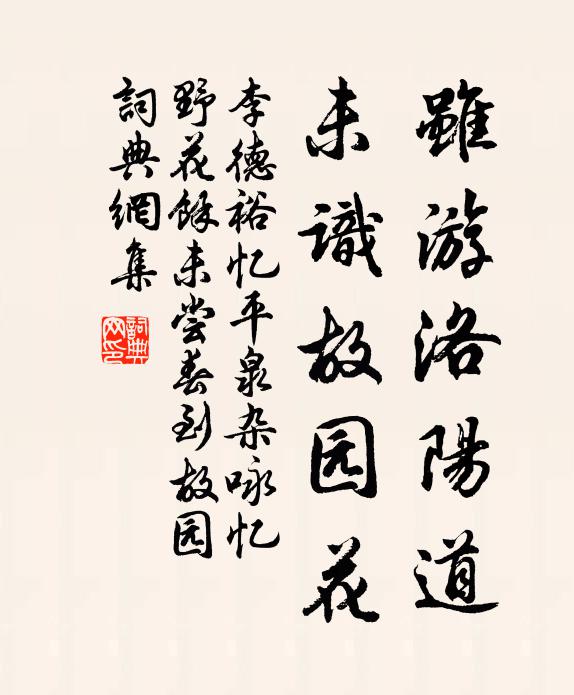 雖游洛陽道
未識故园花
李德裕忆平泉杂咏忆
野花餘未尝春到故园
詞典網集
詞典网印